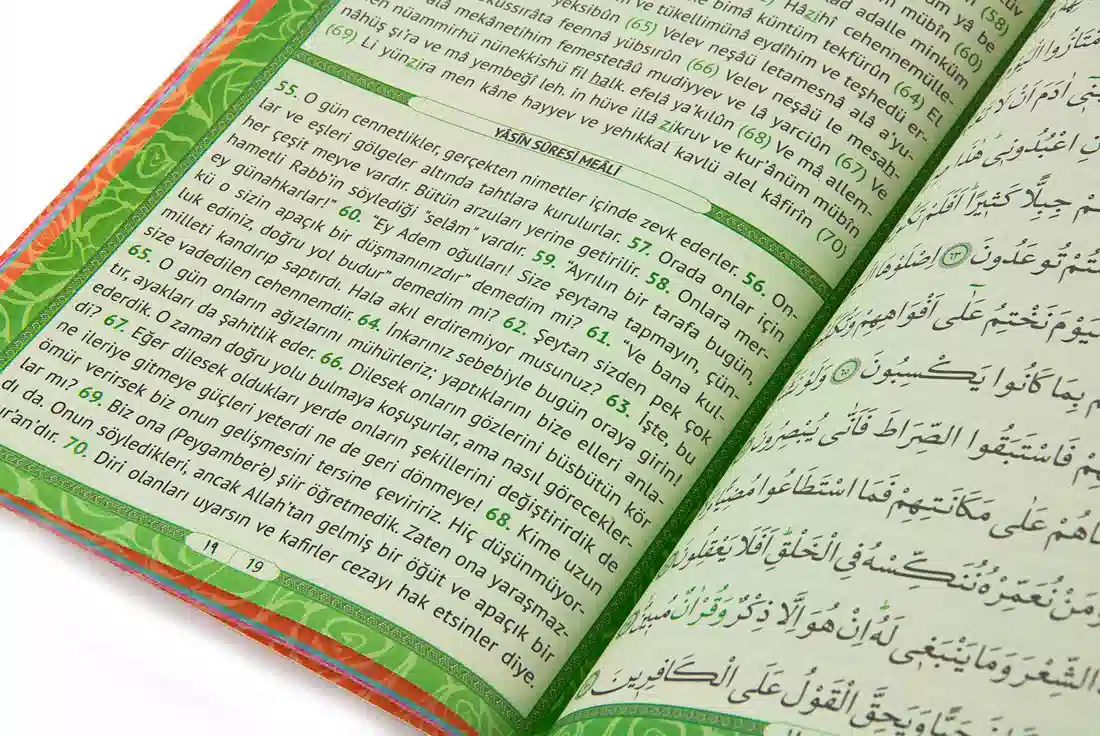 (58)
mübîn (60)
adalle minküm
Hâzihî cehennemülle-
bimâ küntüm tekfürûn (64) El
ve tükellimünâ eydîhim ve teşhedü er-
yeksibûn (65) Velev neşâü letamesnâ alâ a'yu-
kussırâta feennâ yübsırûn (66) Velev neşâü le mesah-
alâ mekânetihim femestetâû mudiyyev ve lâ yarciûn (67) Ve
en nüammirhü nünekkishü fil halk. efelâ ya'kılûn (68) Ve mâ allem-
nâhüş şı'ra ve mâ yembeğî leh. in hüve illâ zikruv ve kur'ânüm mübîn
(69) Li yünzira men kâne hayyev ve yehıkkal kavlü alel kâfirîn (70)
YÂSÎN SÛRESİ MEÂLİ
55. O gün cennetlikler, gerçekten nimetler içinde zevk ederler. 56. On-
lar ve eşleri gölgeler altında tahtlara kurulurlar. 57. Orada onlar için
her çeşit meyve vardır. Bütün arzuları yerine getirilir. 58. Onlara mer-
hametli Rabb'in söylediği "selâm" vardır. 59. "Ayrılın bir tarafa bugün,
ey günahkarlar!" 60. "Ey Adem oğulları! Size şeytana tapmayın, çün-
kü o sizin apaçık bir düşmanınızdır" demedim mi? 61. "Ve bana kul-
luk ediniz, doğru yol budur" demedim mi? 62. Şeytan sizden pek çok
milleti kandırıp saptırdı. Hala akıl erdiremiyor musunuz? 63. İşte, bu
size vadedilen cehennemdir. 64. İnkarınız sebebiyle bugün oraya girin!
65. O gün onların ağızlarını mühürleriz; yaptıklarını bize elleri anla-
tır, ayakları da şahitlik eder. 66. Dilesek onların gözlerini büsbütün kör
ederdik. O zaman doğru yolu bulmaya koşuşurlar, ama nasıl görecekler-
di? 67. Eğer dilesek oldukları yerde onların şekillerini değiştirirdik de
ne ileriye gitmeye güçleri yeterdi ne de geri dönmeye! 68. Kime uzun
ömür verirsek biz onun gelişmesini tersine çeviririz. Hiç düşünmüyor-
lar mı? 69. Biz ona (Peygamber'e) şiir öğretmedik. Zaten ona yaraşmaz-
dı da. Onun söyledikleri, ancak Allah'tan gelmiş bir öğüt ve apaçık bir
ur'an'dır. 70. Diri olanları uyarsın ve kafirler cezayı hak etsinler diye.
١٩ 19
اٰدَمَ اَنْ لَا
اعْبُدُونٖى هٰذَا
جِبِلًّا كَثٖيرًا اَفَلَمْ
تُوعَدُونَ ٦٣ اِصْلَوْهَا
نَخْتِمُ عَلٰٓى اَفْوَاهِهِمْ
بِمَا كَانُوا يَكْسِبُونَ ٦٥ وَلَوْ
فَاسْتَبَقُوا الصِّرَاطَ فَاَنّٰى يُبْصِرُونَ
عَلٰى مَكَانَتِهِمْ فَمَا اسْتَطَاعُوا
وَمَنْ نُعَمِّرْهُ نُنَكِّسْهُ فِى الْخَلْقِ اَفَلَا يَعْقِلُونَ
الشِّعْرَ وَمَا يَنْبَغٖى لَهُ اِنْ هُوَ اِلَّا ذِكْرٌ وَقُرْاٰنٌ مُبٖينٌ
وَيَحِقَّ الْقَوْلُ عَلَى الْكَافِرٖينَ